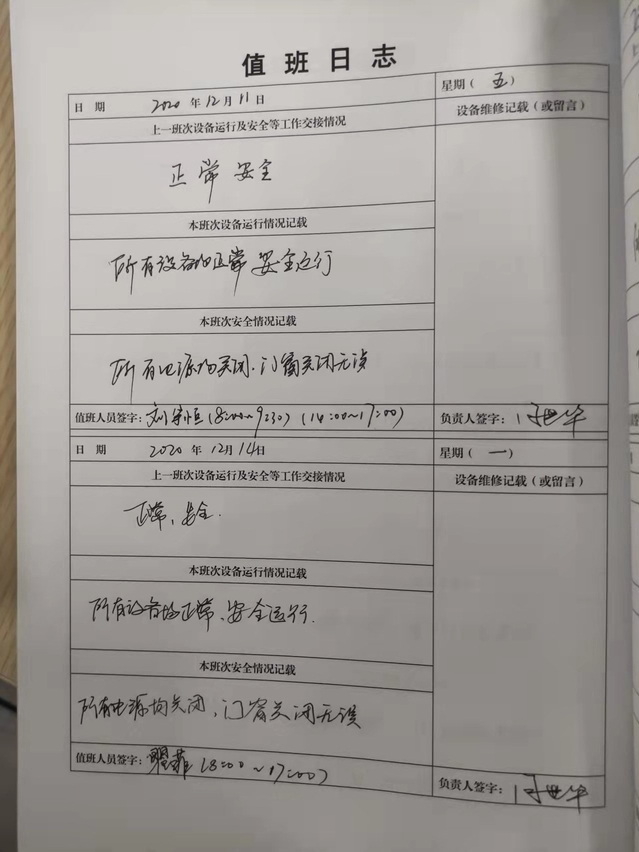 值班日志
日 期 2020 年 12 月 11 日 星期（ 五 ）
上一班次设备运行及安全等工作交接情况 设备维修记载（或留言）
正常 安全
本班次设备运行情况记载
所有设备均正常 安全运行
本班次安全情况记载
所有电源均关闭、门窗关闭无误
值班人员签字： (8:00~9:30) (14:00~17:00) 负责人签字：
日 期 2020 年 12 月 14 日 星期（ 一 ）
上一班次设备运行及安全等工作交接情况 设备维修记载（或留言）
正常、安全.
本班次设备运行情况记载
所有设备均正常、安全运行.
本班次安全情况记载
所有电源均关闭，门窗关闭无误
值班人员签字： (8:00~17:00) 负责人签字：